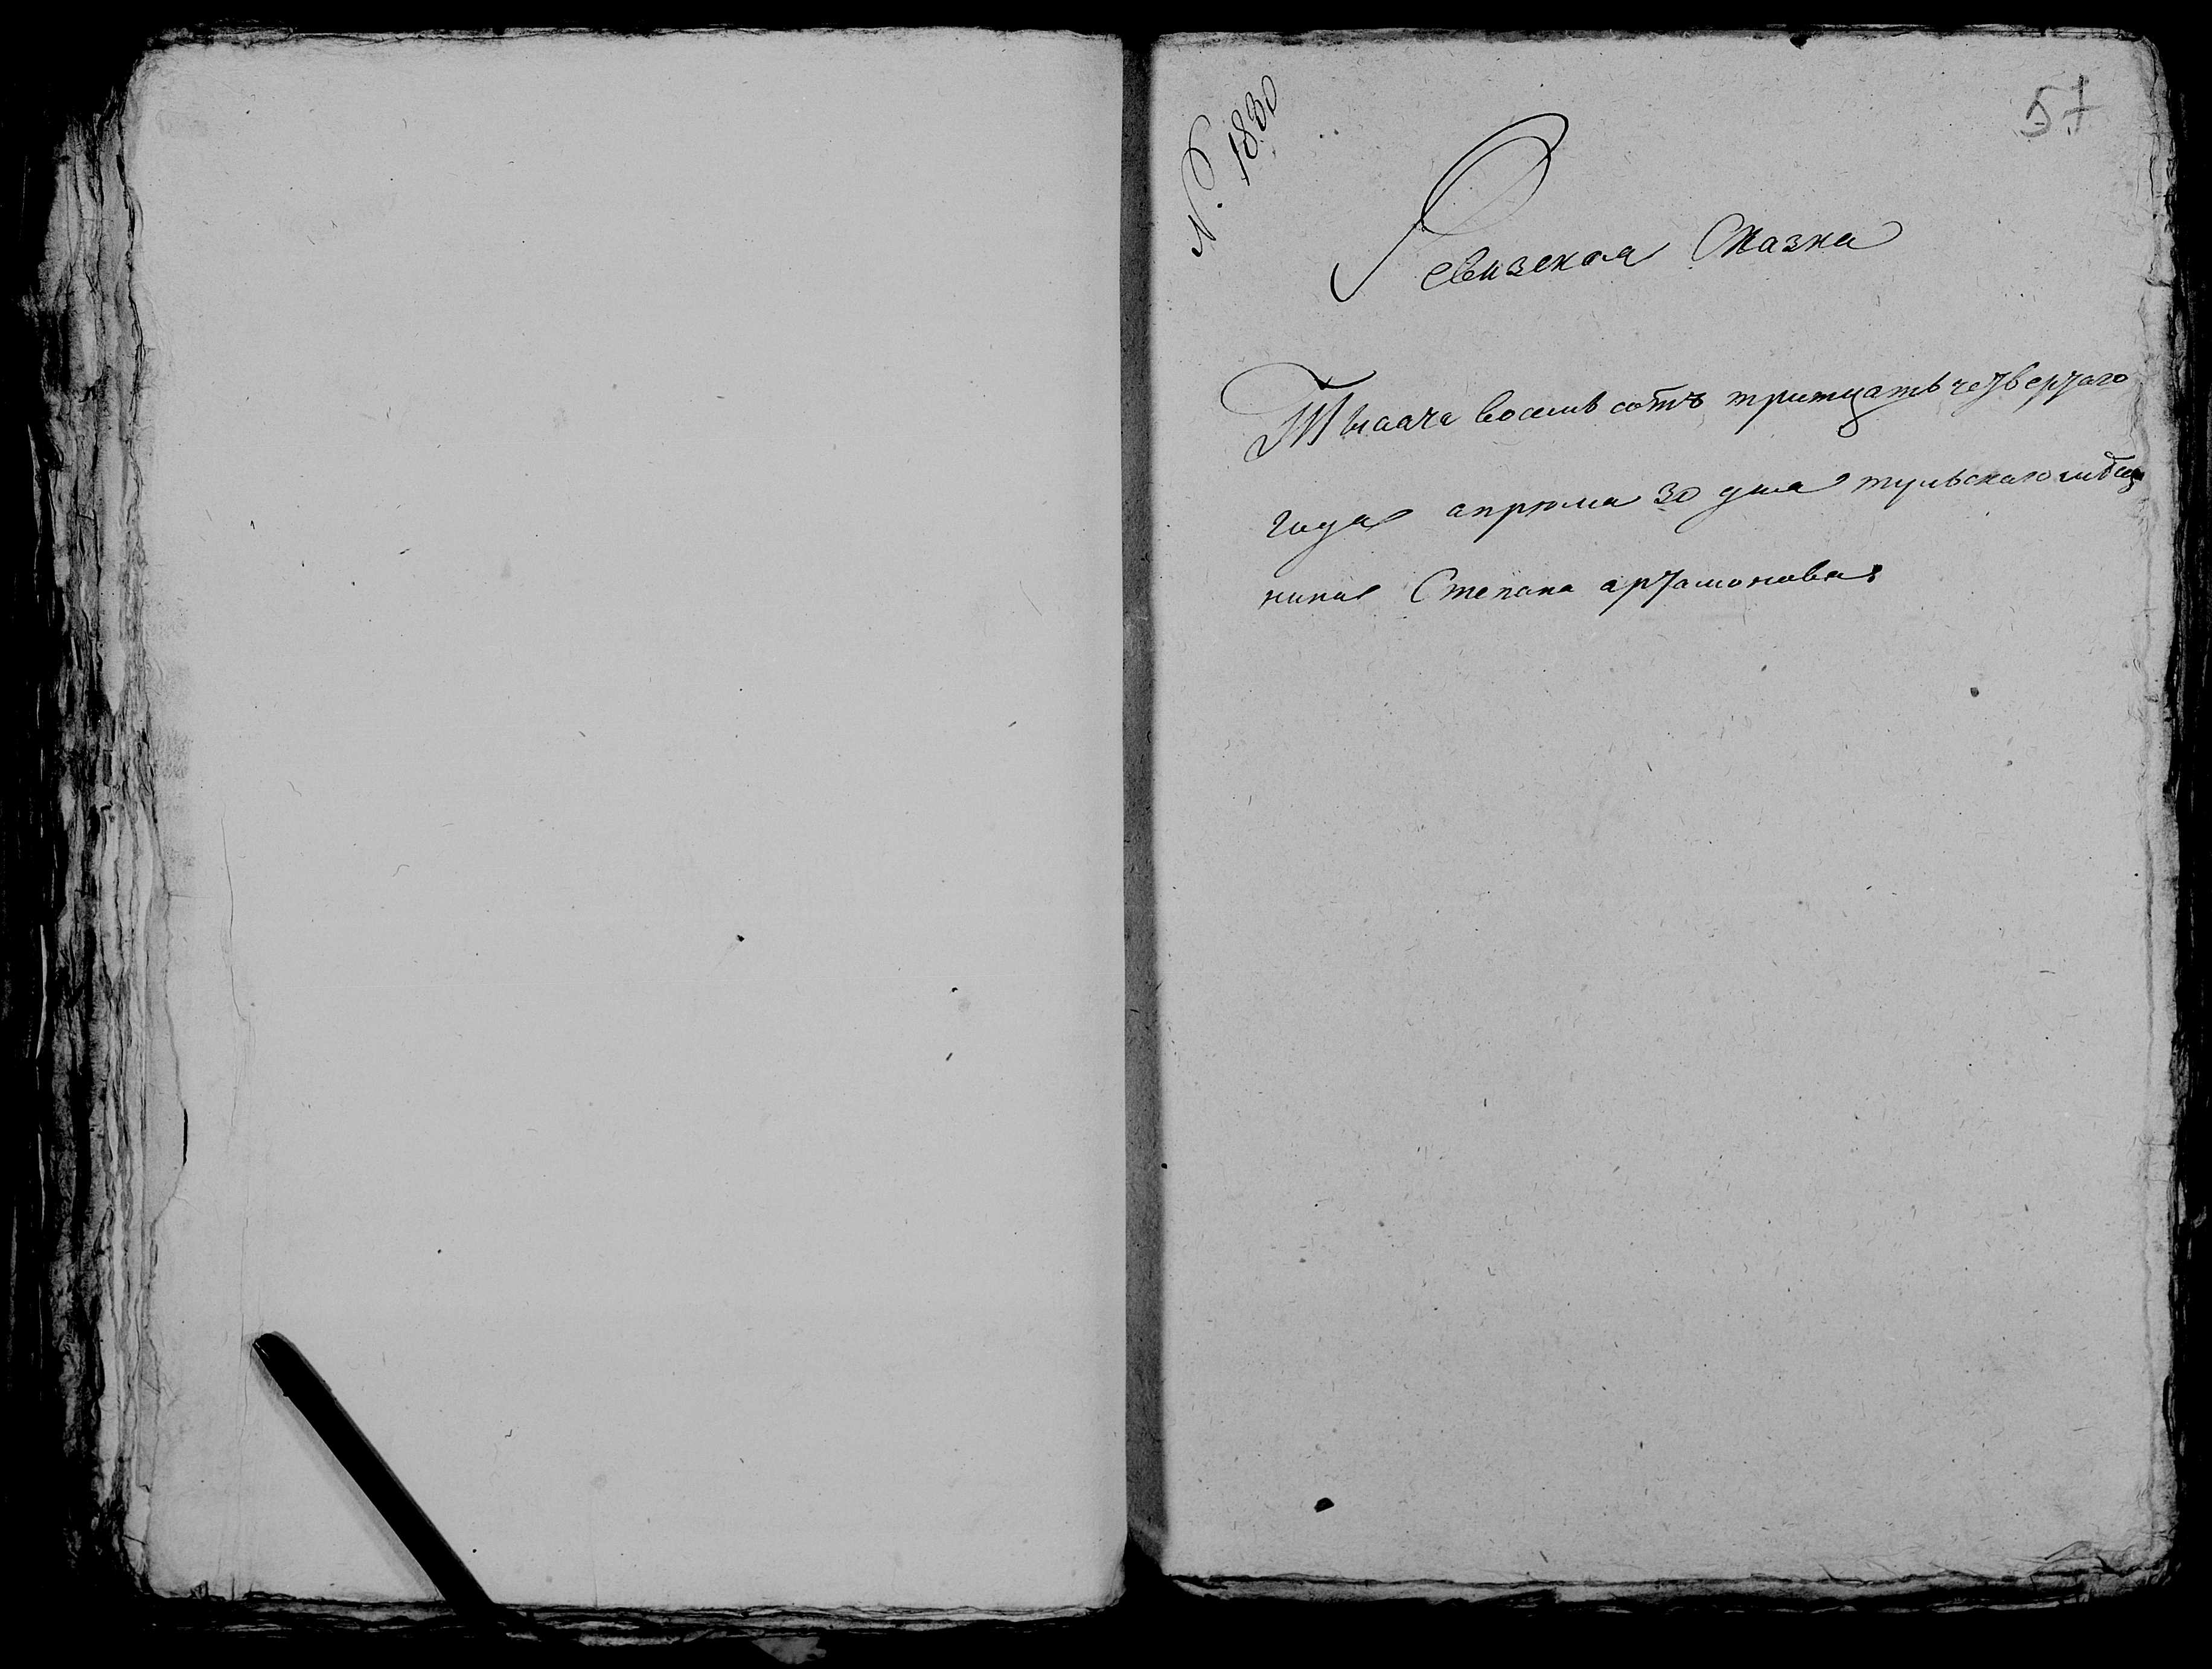 57
N. 1830
Ревизская Сказка
Тысяча восемь сотъ тритцать четвертаго
года апреля 30 дня тульскаго мѣщя
нина Степана артамонова